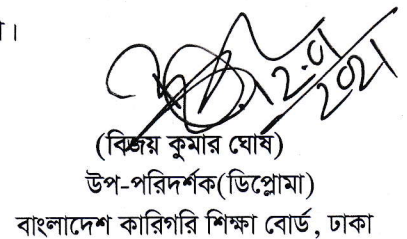 ।
2.01
2021
(বিজয় কুমার ঘোষ)
উপ-পরিদর্শক(ডিপ্লোমা)
বাংলাদেশ কারিগরি শিক্ষা বোর্ড, ঢাকা